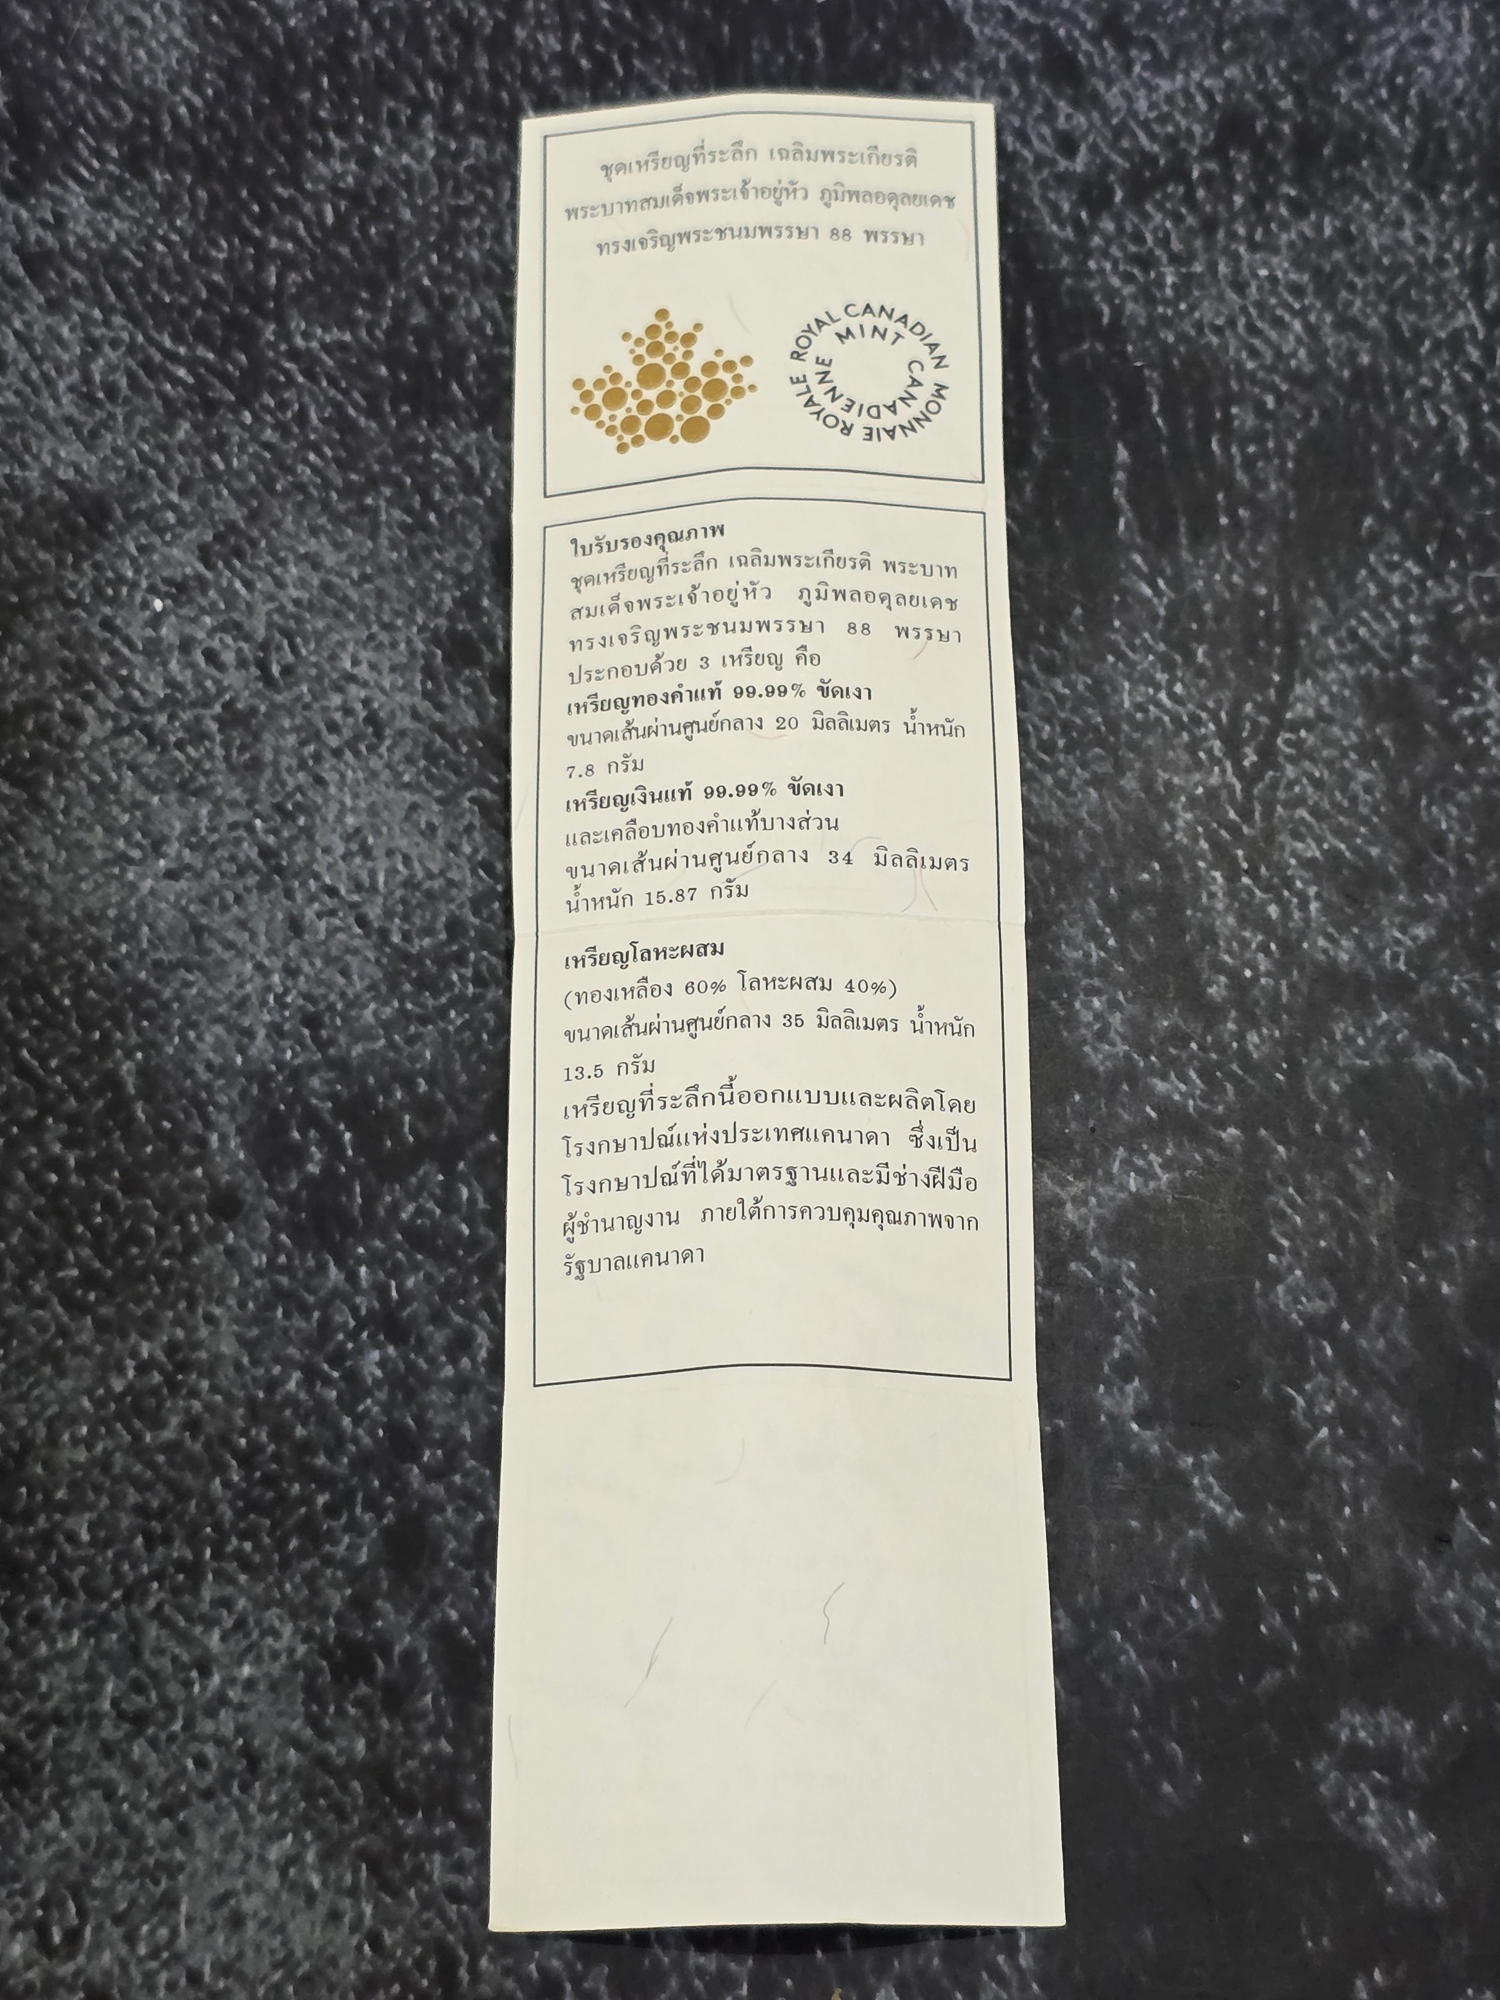 ชุดเหรียญที่ระลึก เฉลิมพระเกียรติ
พระบาทสมเด็จพระเจ้าอยู่หัว ภูมิพลอดุลยเดช
ทรงเจริญพระชนมพรรษา 88 พรรษา
ROYAL CANADIAN MINT
MONNAIE ROYALE CANADIENNE
ใบรับรองคุณภาพ
ชุดเหรียญที่ระลึก เฉลิมพระเกียรติ พระบาท
สมเด็จพระเจ้าอยู่หัว ภูมิพลอดุลยเดช
ทรงเจริญพระชนมพรรษา 88 พรรษา
ประกอบด้วย 3 เหรียญ คือ
เหรียญทองคำแท้ 99.99% ขัดเงา
ขนาดเส้นผ่านศูนย์กลาง 20 มิลลิเมตร น้ำหนัก
7.8 กรัม
เหรียญเงินแท้ 99.99% ขัดเงา
และเคลือบทองคำแท้บางส่วน
ขนาดเส้นผ่านศูนย์กลาง 34 มิลลิเมตร
น้ำหนัก 15.87 กรัม
เหรียญโลหะผสม
(ทองเหลือง 60% โลหะผสม 40%)
ขนาดเส้นผ่านศูนย์กลาง 35 มิลลิเมตร น้ำหนัก
13.5 กรัม
เหรียญที่ระลึกนี้ออกแบบและผลิตโดย
โรงกษาปณ์แห่งประเทศแคนาดา ซึ่งเป็น
โรงกษาปณ์ที่ได้มาตรฐานและมีช่างฝีมือ
ผู้ชำนาญงาน ภายใต้การควบคุมคุณภาพจาก
รัฐบาลแคนาดา